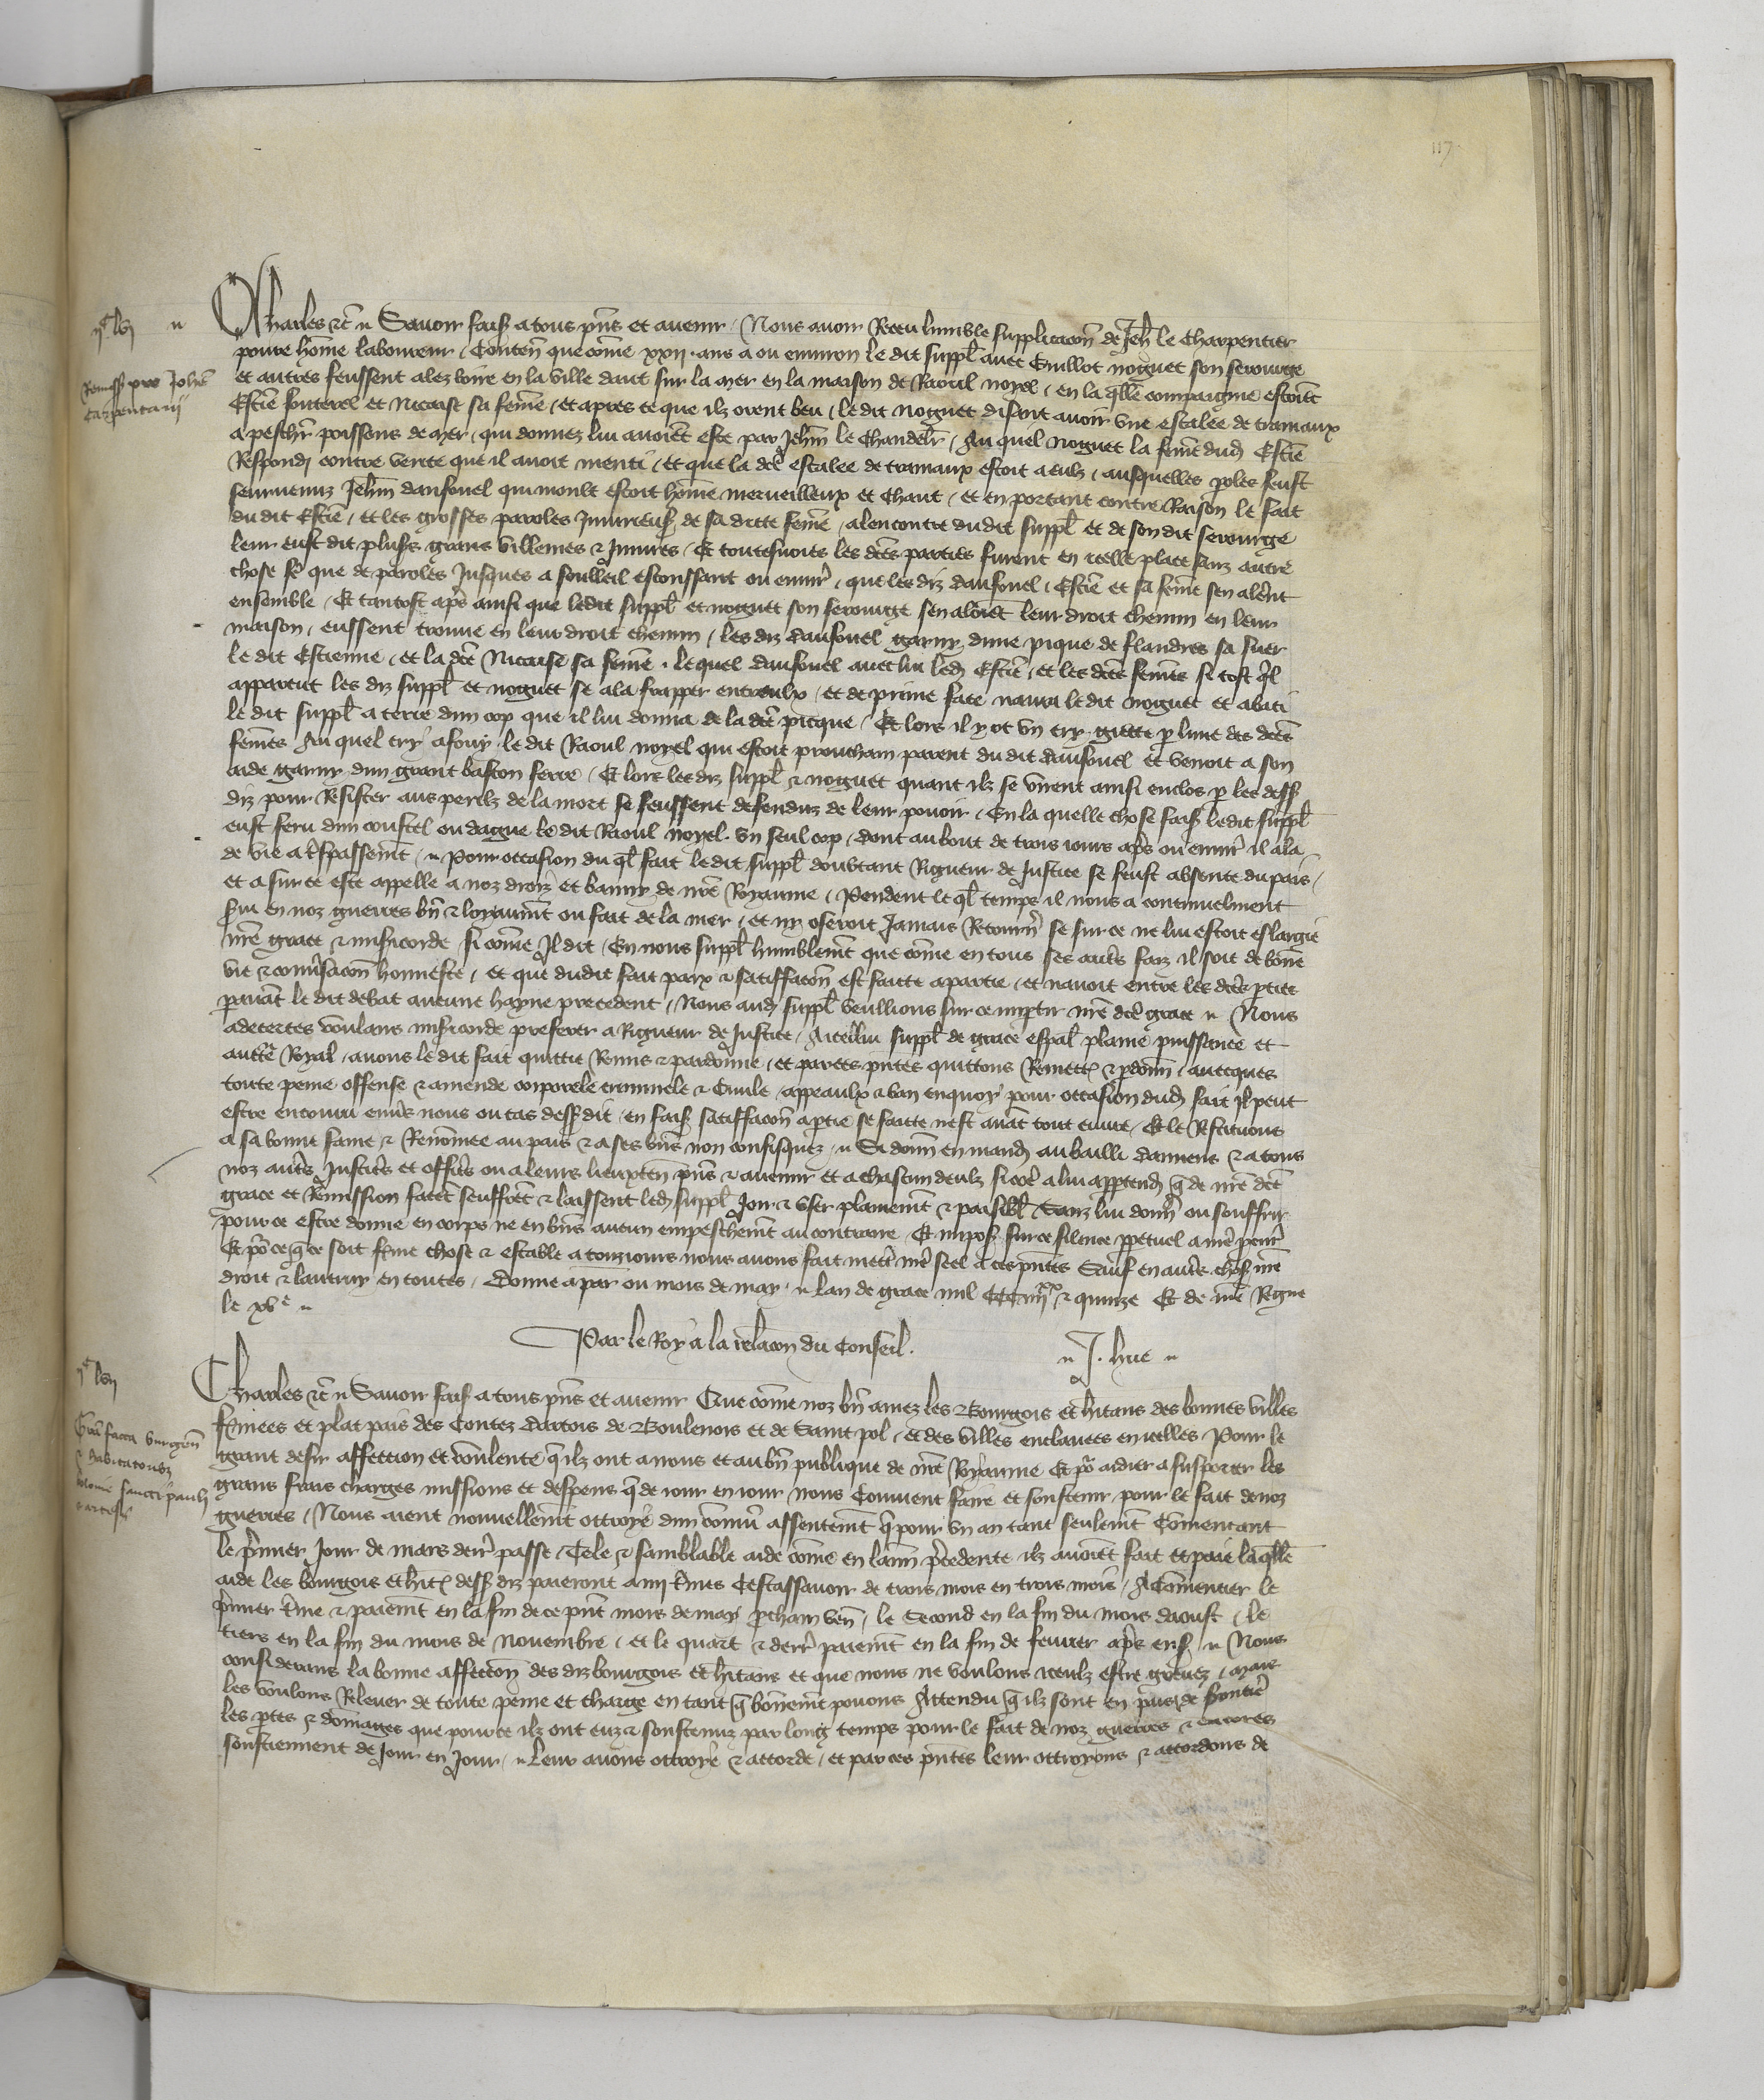 117
Charles etc. Savoir faisons a tous pñs et avenir, Nous avoir Receu lumble supplicacõn de Jehñ le Charpentier
povre hõme laboureur, Contenñ que cõme xxii ans a ou environ le dit suppl avec Guillot noguet son serourge
et autres feussent alez boire en la ville daut sur la mer en la maison de Raoul noyel, en la qlle compaignie estoiẽt
Estiẽ sonterel et Nicaise sa feme, et apres ce que ilz orent beu, le dit Noguet disoit avoir une escalee de tramaux
a peschr poissons de mer, qui donnez lui avoiẽt este par Jehñ le Chandelr, Au quel noguet la feme dud Estiẽ
Respondi contre verite que il avoit menti, et que la dce escalee de tramaux estoit a eulz, ausquelles poles feust
seurvenuz Jehñ dausonel qui moult estoit hõme merveilleux et Chaut, et en portant contre Raison le fait
du dit Estiẽ, et les grosses paroles Injurieus de sa dicte feme, alencontre du dit suppl et de son dit serourge
leur eust dit plusrs grans villenies et Injures, Et toutesvoies les dces parties furent en icelle place sanz autre
chose fe que de paroles Jusques a soulleil esconssant ou envir, que les diz dausonel, Estiẽ et sa feme sen alerent
ensemble, Et tantost apres ainsi que ledit suppl et noguet son serourge sen aloiẽt leur droit chemin en leur
maison, eussent trouve en leur droit chemin, les diz dausonel garny dune pique de flandres sa suer
le dit Estienne, et la dce Nicaise sa feme. lequel dausonel avec lui led Estiẽ, et les dces femes si tost ql
apparceut les diz suppl et noguet se ala frapper entreulx, et de prime face navra le dit noguet et abati
le dit suppl a terre dun cop que il lui donna de la dce picque, Et lors il y ot un cry gitte p lune des dces
femes Au quel cry afouy le dit Raoul noyel qui estoit prouchain parent du dit dausonel et venoit a son
aide garny dun grant baston ferre, Et lors les diz suppl et noguet quant ilz se virent ainsi enclos p les dess
diz pour Resister aus perilz de la mort se feussent defenduz de leur povoir, En la quelle chose fais ledit suppl
eust feru dun coustel ou dague le dit Raoul noyel un seul cop, dont au bout de trois iours apres ou envir il ala
de vie a trespassemt, Pour occasion du ql fait le dit suppl doubtant Rigueur de Justice se feust absente du pais,
et a sur ce este appelle a noz droiz et banny de nre Royaume, Pendent le ql temps il nous a continuelment
svi en noz guerres bñ et loyaumt ou fait de la mer, et ny oseroit Jamais Retourner se sur ce ne lui estoit eslargie
nre grace et misericorde si cõme Il dit, En nous suppl humblemt que cõme en tous ses autres faiz il soit de bõne
vie et conversacõn honneste, et que du dit fait paix et satiffacõn est faicte a partie, et navoit entre les dces pties
pavant le dit debat aucune hayne precedent, Nous aud suppl veullions sur ce impartir nre dce grace Nous
adecertes voulans misericorde preferer a Rigueur de Justice, A icellui suppl de grace espal plaine puissance et
auctte Royal, avons le dit fait quictie Remis et pardonne, et par ces pñtes quittons Remett et pdonñ, avecques
toute peine offense et amende corporele criminele et Civile, appeaulx et ban enquoy pour occasion dud fait Il peut
estre encouru envrs nous ou cas dess dit, en fais satiffacõn a ptie se faicte nest avãt tout euvre, Et le Restituons
a sa bonne fame et Renõmee au pais et a ses bñs non confisquez. Si donñ en mand au bailli damiens et a tous
noz autres Justiciers et officiers ou a leurs lieuxten pñs et avenir et a chascun deulz si cõe a lui apptend q de nre dce
grace et Remission facẽt seuffrẽt et laissent led suppl Joir et user plainemt et paisibl Sanz lui donner ou souffrir
pour ce estre donne en corps ne en bñs aucun empeschemt au contraire. Et impos sur ce silence ppetuel a nre pcur
Et por ce q ce soit ferme chose et estable a touzjours nous avons fait mettre nre scel a ces pñtes Sauf en autres chos nre
droit et lautruy en toutes. Donne a par ou mois de may. Lan de grace mil CCC iiiixx et quinze Et de nre Regne
le xve
Par le Roy a la relacõn du Conseil. J. hue
iic lvi
Remiss pro Johe
Carpentarii
Charles etc. Savoir faisons a tous pñs et avenir Que cõme noz bñ amez les Bourgois et hitans des bonnes villes
fermees et plat pais des Contez dartois de Boulenois et de Saint pol, et des villes enclavees en icelles, Pour le
grant desir affection et voulente q ilz ont a nous et au bñ publique de nre Royaume Et por aidier a supporter les
grans frais charges missions et despens q de iour en iour nous Convient faire et soustenir pour le fait de noz
guerres, Nous aient nouvellemt ottroye dun cõmu assentemt q pour un an tant seulemt Cõmencant
le premier Jour de mars derr passe, Tele et samblable aide cõme en lanñ precedente ilz avoiẽt fait et paie la qlle
aide les bourgois et hit dess diz paieront a iiii termes Cestassavoir de trois mois en trois mois, A Cõmencier le
pmier terme et paiemt en la fin de ce pñt mois de may pcham venñ, le Second en la fin du mois daoust, le
tiers en la fin du mois de Novembre, et le quart et derr paiemt en la fin de fevrier apres ens. Nous
considerans la bonne affection des diz bourgois et hitans et que nous ne voulons iceulz estre grevez, mais
les voulons Relever de toute peine et charge en tant q bonnemt povons Attendu q ilz sont en pais de frontiere
les ptes et dommages que pour ce ilz ont euz et soustenuz par long temps pour le fait de noz guerres et encores
soustiennent de Jour en Jour, Leur avons ottroye et accorde, et par ces pñtes leur ottroyons et accordons de
iic lvii
Gra facta burgen
et habitatoribz
bolonie sancti pauli